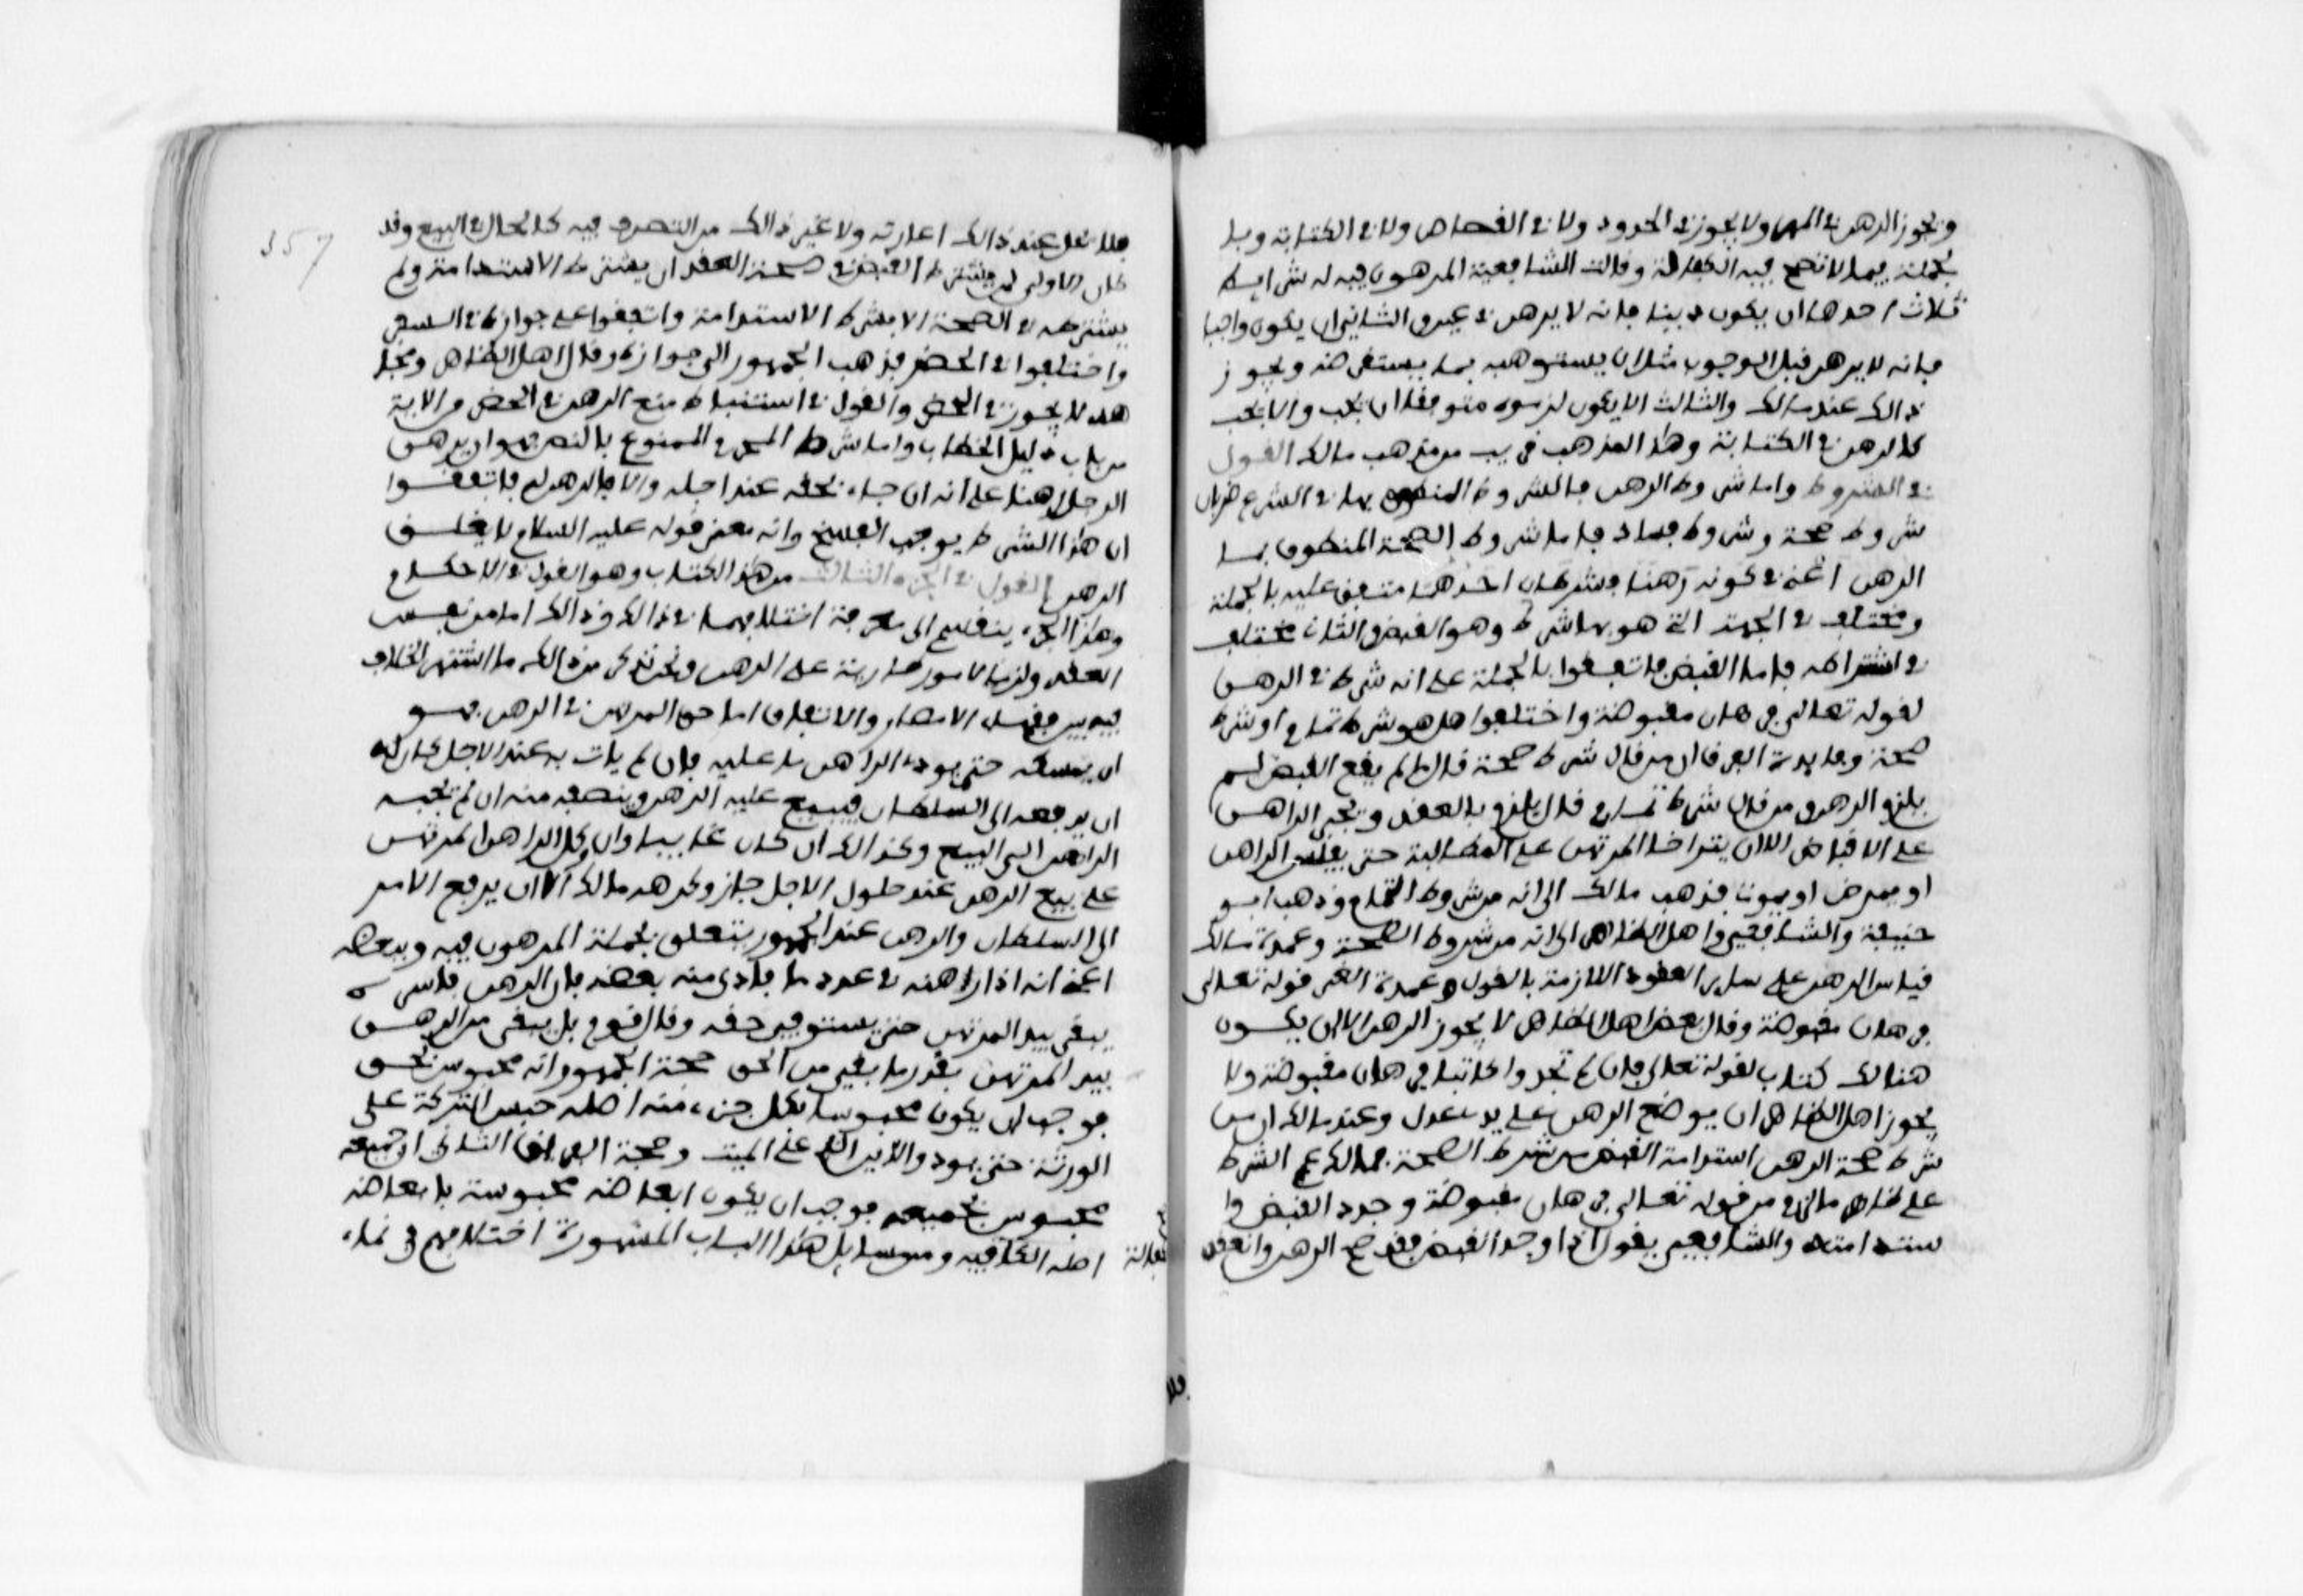 ويجوز الرهن في المهر ولا يجوز في الحدود ولا في القصاص ولا في الكتابة وبا
لجملة فيما لا تصح فيه الكفالة وقالت الشافعية المرهون فيه له شرايط
ثلاث احدها ان يكون دينا فانه لا يرهن في عين والثاني ان يكون واجبا
فانه لا يرهن قبل الوجوب مثل ان يسترهنه بما يستقرضه ويجوز
ذالك عند مالك والثالث الا يكون لزومه متوقعا ان يجب والا يجب
كالرهن في الكتابة وهذا المذهب قريب من مذهب مالك القول
في الشروط واما شروط الرهن فالشروط المنطوق بها في الشرع ضربان
شروط صحة وشروط فساد فاما شروط الصحة المنطوق بها
الرهن اعني في كونه رهنا فشرطان احدهما متفق عليه بالجملة
ومختلف في الجهة التي هو بها شرط وهو القبض والثاني مختلف
في اشتراطه فاما القبض فاتفقوا بالجملة على انه شرط في الرهن
لقوله تعالى فرهان مقبوضة واختلفوا هل هو شرط تمام او شرط
صحة وفايدة الفرق ان من قال شرط صحة قال ما لم يقع القبض لم
يلزم الرهن ومن قال شرط تمام قال يلزم بالعقد ويجبر الراهن
على الاقباض الا ان يتراخا المرتهن على المطالبة حتى يفلس الراهن
او يمرض او يموت فذهب مالك الى انه من شروط التمام وذهب ابو
حنيفة والشافعي واهل الظاهر الى انه من شروط الصحة وعمدة مالك
قياس الرهن على ساير العقود اللازمة بالقول وعمدة الغير قوله تعالى
فرهان مقبوضة وقال بعض اهل الظاهر لا يجوز الرهن الا ان يكون
هنالك كتاب لقوله تعالى فان لم تجدوا كاتبا فرهان مقبوضة ولا
يجوز اهل الظاهر ان يوضع الرهن على يد عدل وعند مالك ان من
شرط صحة الرهن استدامة القبض من شرط الصحة فمالك عم الشرط
على ظاهر ما لزم من قوله تعالى فرهان مقبوضة وجود القبض وا
ستدامته والشافعي يقول اذا وجد القبض فقد صح الرهن وانعقد
فلا يحل عند ذالك اعارته ولا غير ذالك من التصرف فيه كالحال في البيع وقد
كان الاولى لمن يشترط القبض في صحة العقد ان يشترط الاستدامة ولم
يشترطه في الصحة الا يشترط الاستدامة واتفقوا على جوازه في السفر
واختلفوا في الحضر فذهب الجمهور الى جوازه وقال اهل الظاهر ومجا
هد لا يجوز في الحضر والقول في استنباط منع الرهن في الحضر من الاية
من باب دليل الخطاب واما شرط المحرم الممنوع بالنص فهو ان يرهن
الرجل رهنا على انه ان جاء بحقه عند اجله والا فالرهن له فاتفقوا
ان هذا الشرط يوجب الفسخ وانه معنى قوله عليه السلام لا يغلق
الرهن القول في الجزء الثالث من هذا الكتاب وهو القول في الاحكام
وهذا الجزء ينقسم الى معرفة اختلافهما في ذالك وذالك اما من نفس
العقد واما لامور طارية على الرهن ونحن نذكر من ذالك ما اشتهر الخلاف
فيه بين فقهاء الامصار والاتفاق اما حق المرتهن في الرهن فهو
ان يمسكه حتى يودي الراهن ما عليه فان لم يات به عند الاجل كان له
ان يرفعه الى السلطان فيبيع عليه الرهن وينصفه منه ان لم يجبه
الراهن الى البيع وكذالك ان كان غايبا وان وكل الراهن المرتهن
على بيع الرهن عند حلول الاجل جاز وكرهه مالك الا ان يرفع الامر
الى السلطان والرهن عند الجمهور يتعلق بجملة المرهون فيه وببعضه
اعني انه اذا رهنه في عدد ما فادى منه بعضه فان الرهن باسره
يبقى بيد المرتهن حتى يستوفي حقه وقال قوم بل يبقى من الرهن
بيد المرتهن بقدر ما يبقى من الحق حجة الجمهور انه محبوس بحق
فوجب ان يكون محبوسا بكل جزء منه اصله حبس التركة على
الورثة حتى يودوا الدين الذي على الميت وحجة الفريق الثاني ان جميعه
محبوس بجميعه فوجب ان يكون ابعاضه محبوسة بابعاضه
اصله الكفالة ومن مسايل هذا الباب المشهورة اختلافهم في نماء
357
فلا